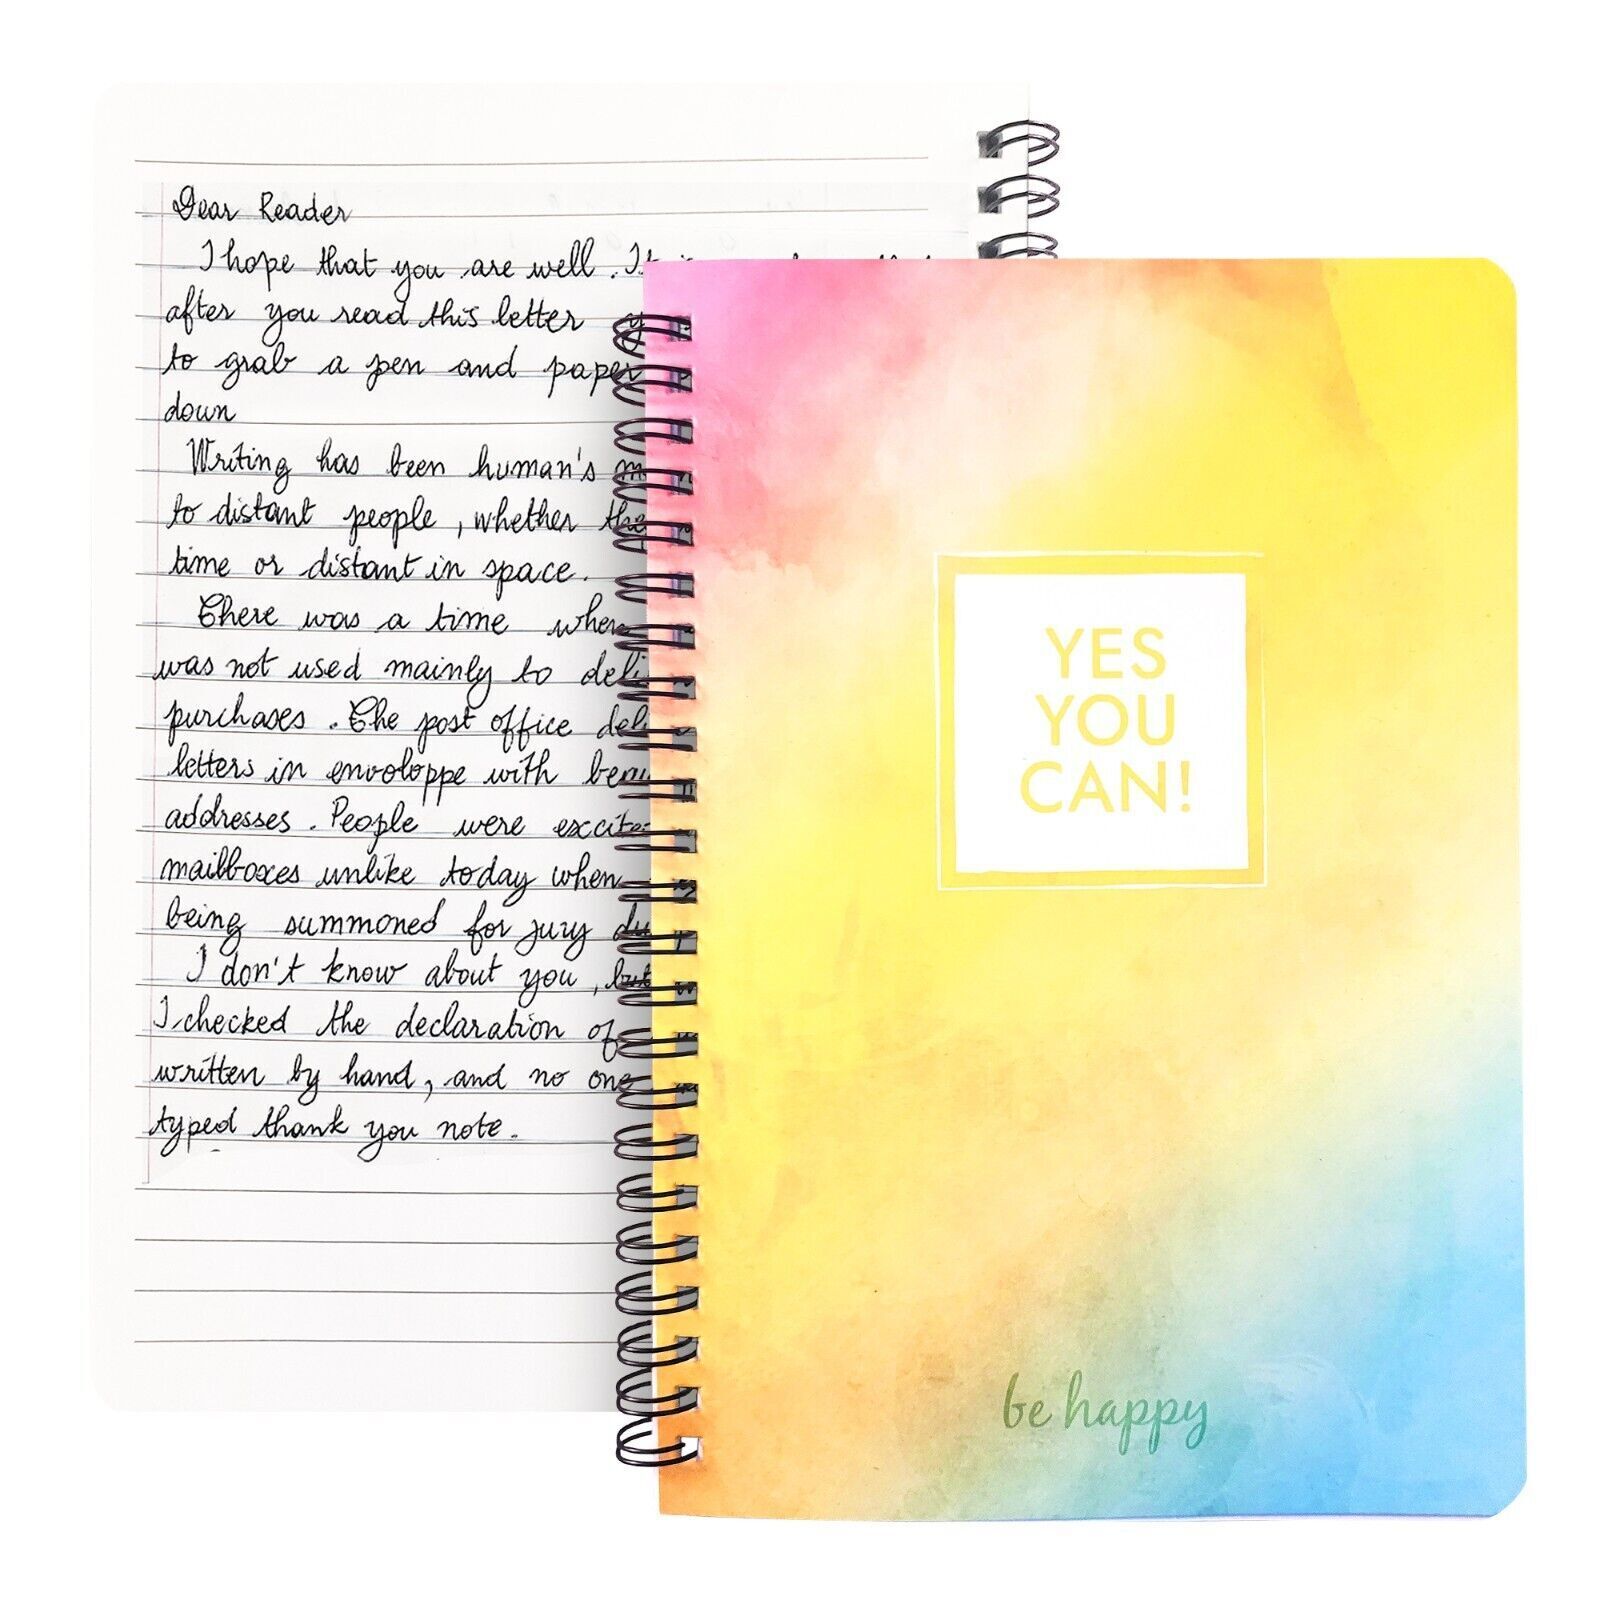 Dear Reader
I hope that you are well. It is
after you read this letter y
to grab a pen and paper
down
Writing has been human's m
to distant people, whether the
time or distant in space.
There was a time when
was not used mainly to deli
purchases. The post office deli
letters in envoloppe with beau
addresses. People were excite
mailboxes unlike today when
being summoned for jury du
I don't know about you, but
I checked the declaration of
written by hand, and no one
typed thank you note.
YES
YOU
CAN!
be happy